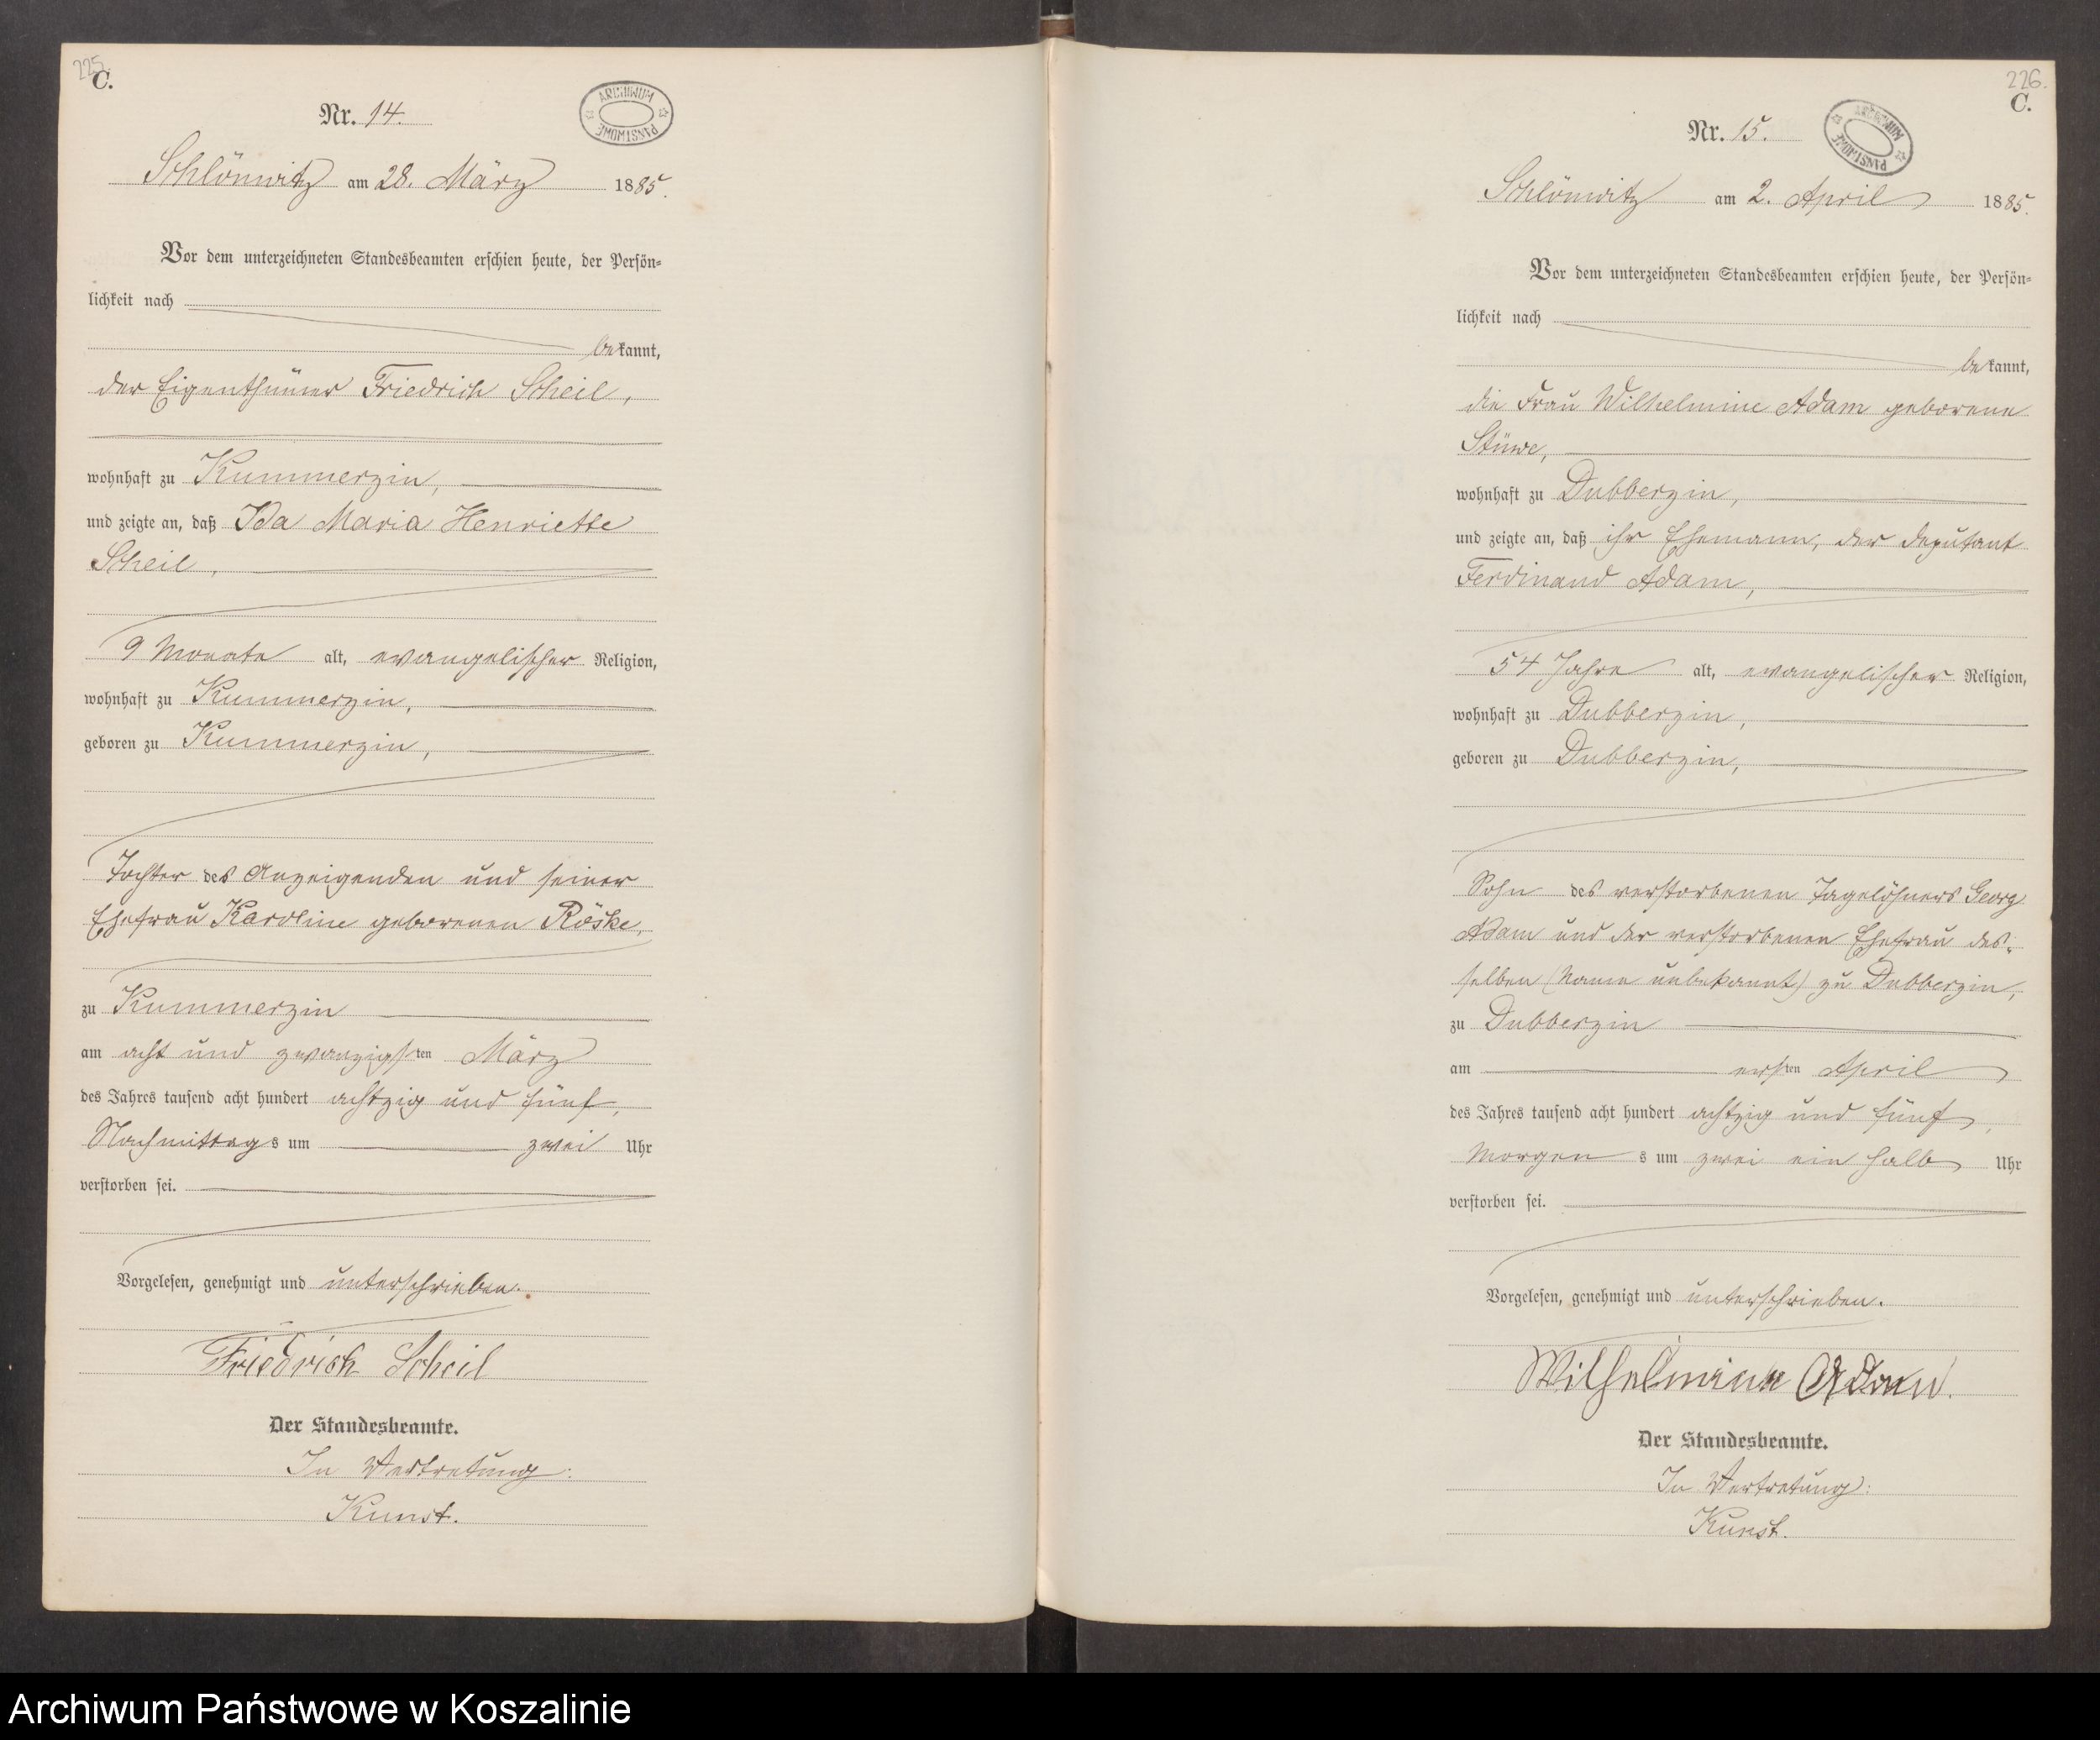 225.
C.
Nr. 14.
ARCHIWUM PAŃSTWOWE
Schlönwitz am 28. März 1885.
Vor dem unterzeichneten Standesbeamten erschien heute, der Persön-
lichkeit nach
bekannt,
der Eigenthümer Friedrich Scheil,
wohnhaft zu Kummerzin,
und zeigte an, daß Ida Maria Henriette
Scheil,
9 Monate alt, evangelischer Religion,
wohnhaft zu Kummerzin,
geboren zu Kummerzin,
Tochter des Anzeigenden und seiner
Ehefrau Karoline geborenen Röske,
zu Kummerzin
am acht und zwanzigsten März
des Jahres tausend acht hundert achtzig und fünf,
Nachmittags um zwei Uhr
verstorben sei.
Vorgelesen, genehmigt und unterschrieben.
Friedrich Scheil
Der Standesbeamte.
In Vertretung:
Kunst.
226.
C.
Nr. 15.
ARCHIWUM PAŃSTWOWE
Schlönwitz am 2. April 1885.
Vor dem unterzeichneten Standesbeamten erschien heute, der Persön-
lichkeit nach
bekannt,
die Frau Wilhelmine Adam geborene
Stüwe,
wohnhaft zu Dubberzin,
und zeigte an, daß ihr Ehemann, der Deputant
Ferdinand Adam,
54 Jahre alt, evangelischer Religion,
wohnhaft zu Dubberzin,
geboren zu Dubberzin,
Sohn des verstorbenen Tagelöhners Georg
Adam und der verstorbenen Ehefrau des-
selben (Name unbekannt) zu Dubberzin,
zu Dubberzin
am ersten April
des Jahres tausend acht hundert achtzig und fünf,
Morgens um zwei ein halb Uhr
verstorben sei.
Vorgelesen, genehmigt und unterschrieben.
Wilhelmine Adam.
Der Standesbeamte.
In Vertretung:
Kunst.
Archiwum Państwowe w Koszalinie